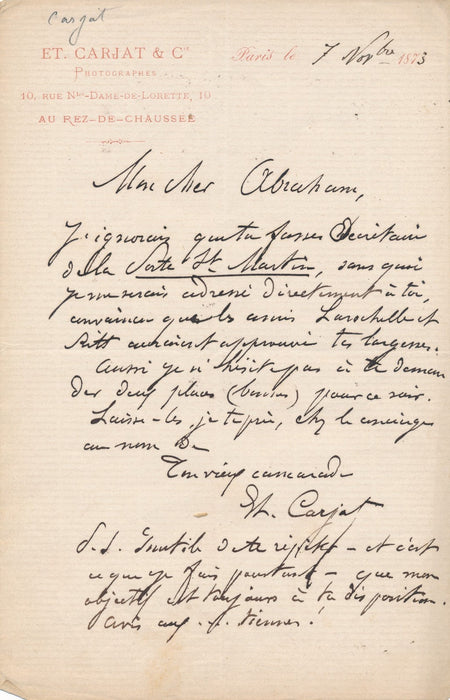 Carjat
ET. CARJAT & Cie
PHOTOGRAPHES
10, RUE Ntre-DAME-DE-LORETTE, 10
AU REZ-DE-CHAUSSÉE
Paris le 7 Novbre 1873
Mon cher Abraham,
J'ignorais que tu fusses Secrétaire
de la Porte St Martin, sans quoi
je me serais adressé directement à toi,
convaincu que les amis Larochelle et
Ritt auraient approuvé tes largesses.
Aussi je n'hésite pas à te deman
der deux places (bonnes) pour ce soir.
Laisse-les, je te prie, chez le concierge
au nom de
Ton vieux camarade
Et. Carjat
P.S. Inutile de te répéter - et c'est
ce que je fais pourtant - que mon
objectif est toujours à ta disposition.
Avis aux tiennes!